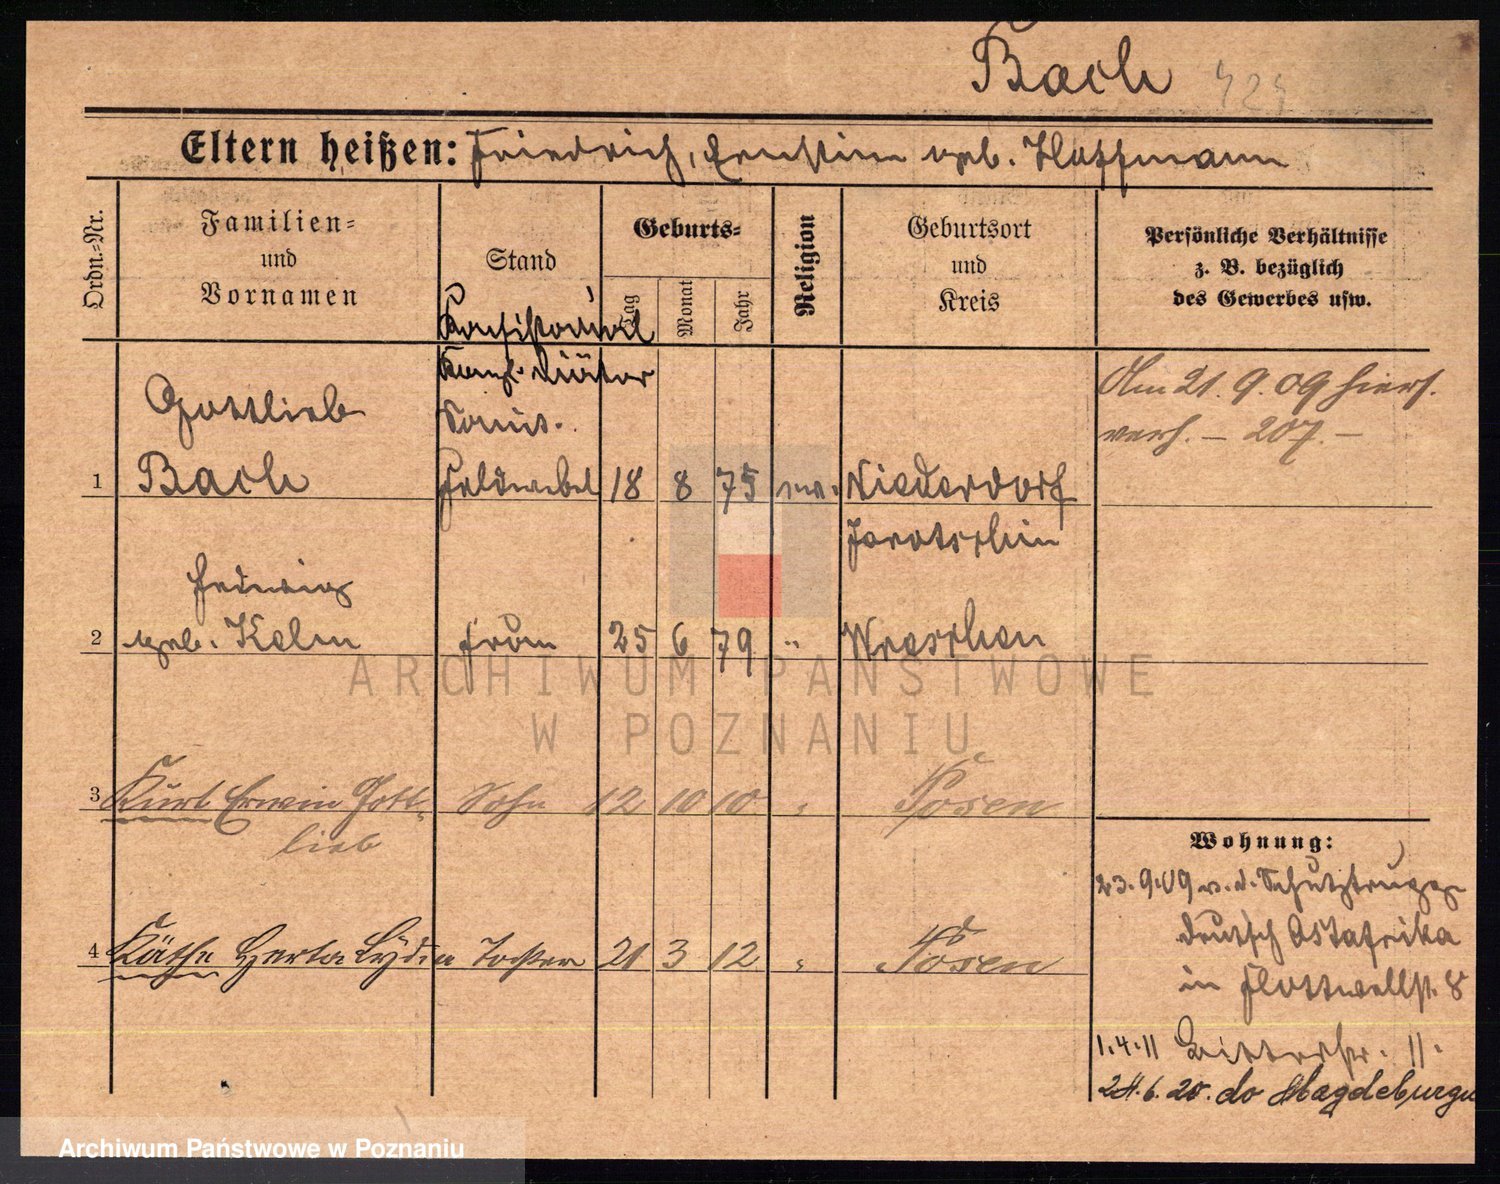 Bach 424
Eltern heißen: Friedrich, Ernstine geb. Hoffmann
Ordn.-Nr.
Familien-
und
Vornamen
Stand
Geburts-
Tag
Monat
Jahr
Religion
Geburtsort
und
Kreis
Persönliche Verhältnisse
z. B. bezüglich
des Gewerbes usw.
Konsistorial
Kanzl. Diätar
Gottlieb
Am 21. 9. 09 hier
verh. – 207. –
1 Bach Feldwebel 18 8 75 ev. Niederdorf
Jarotschin
Hedwig
2 geb. Kalm Frau 25 6 79 " Wreschen
3 Kurt Erwin Gott- Sohn 12 10 10 " Posen
lieb
4 Käthe Herta Lydia Tochter 21 3 12 " Posen
Wohnung:
23.9.09 v. d. Schutztruppe
deutsch Ostafrika
in Flottwellstr. 8
1.4.11 Ritterstr. 11.
24.6.20. do Magdeburga
ARCHIWUM PAŃSTWOWE
W POZNANIU
Archiwum Państwowe w Poznaniu